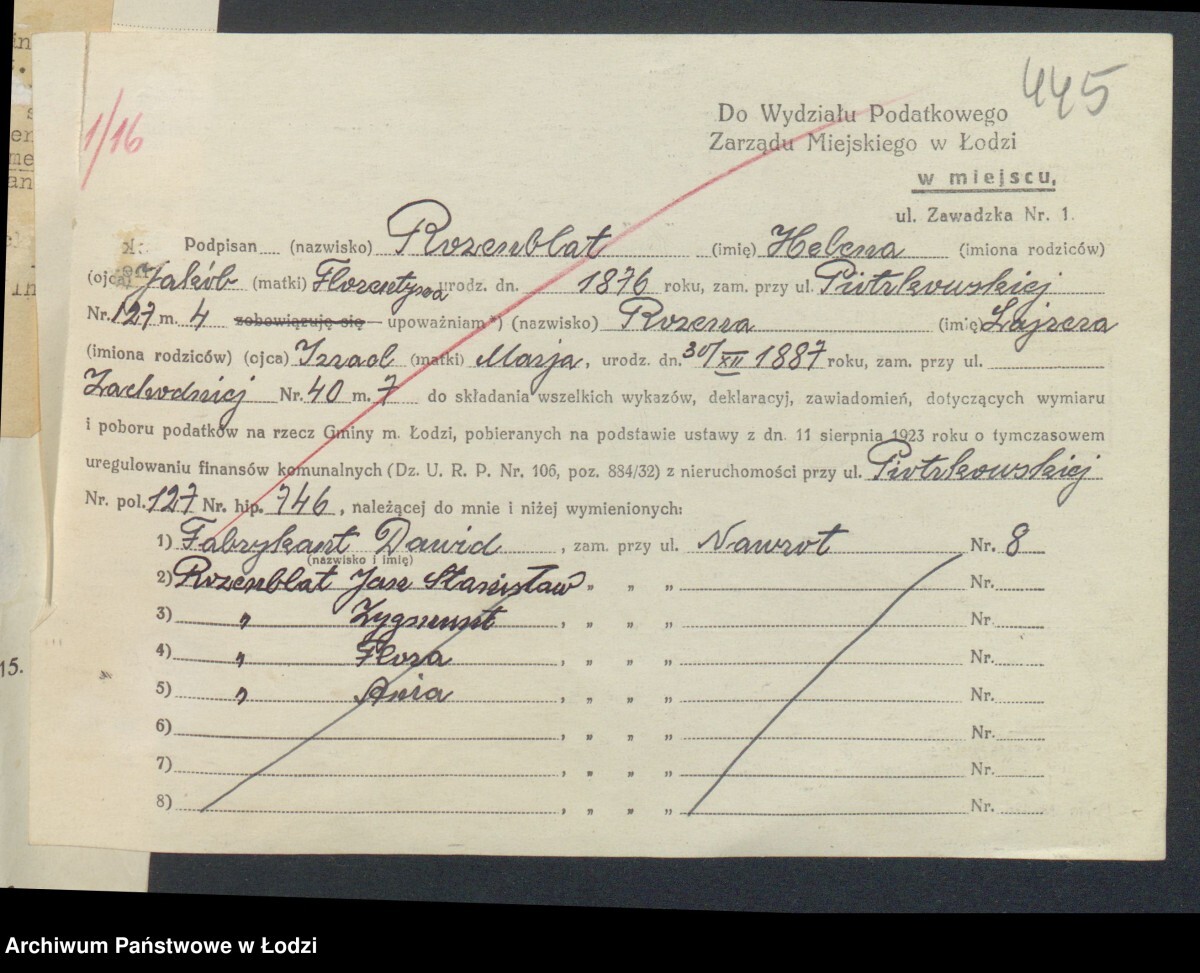 445
1/16
Do Wydziału Podatkowego
Zarządu Miejskiego w Łodzi
w miejscu,
ul. Zawadzka Nr. 1.
Podpisan (nazwisko) Rozenblat (imię) Helena (imiona rodziców)
(ojca) Jakób (matki) Florentyna urodz. dn. 1876 roku, zam. przy ul. Piotrkowskiej
Nr. 127 m. 4 zobowiązuję się upoważniam*) (nazwisko) Rozena (imię) Lajzera
(imiona rodziców) (ojca) Izrael (matki) Marja, urodz. dn. 30/XII 1887 roku, zam. przy ul.
Zachodniej Nr. 40 m. 7 do składania wszelkich wykazów, deklaracyj, zawiadomień, dotyczących wymiaru
i poboru podatków na rzecz Gminy m. Łodzi, pobieranych na podstawie ustawy z dn. 11 sierpnia 1923 roku o tymczasowem
uregulowaniu finansów komunalnych (Dz. U. R. P. Nr. 106, poz. 884/32) z nieruchomości przy ul. Piotrkowskiej
Nr. pol. 127 Nr. hip. 746, należącej do mnie i niżej wymienionych:
1) Fabrykant Dawid, zam. przy ul. Nawrot Nr. 8
(nazwisko i imię)
2) Rozenblat Jan Stanisław „ „ „ Nr.
3) „ Zygmunt, „ „ „ Nr.
4) „ Flora, „ „ „ Nr.
5) „ Ania, „ „ „ Nr.
6) , „ „ „ Nr.
7) , „ „ „ Nr.
8) , „ „ „ Nr.
15.
Archiwum Państwowe w Łodzi